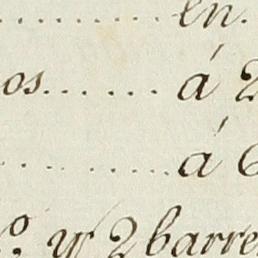 ........... en.
os...... á 2
........... á 6
.º y 2 barre